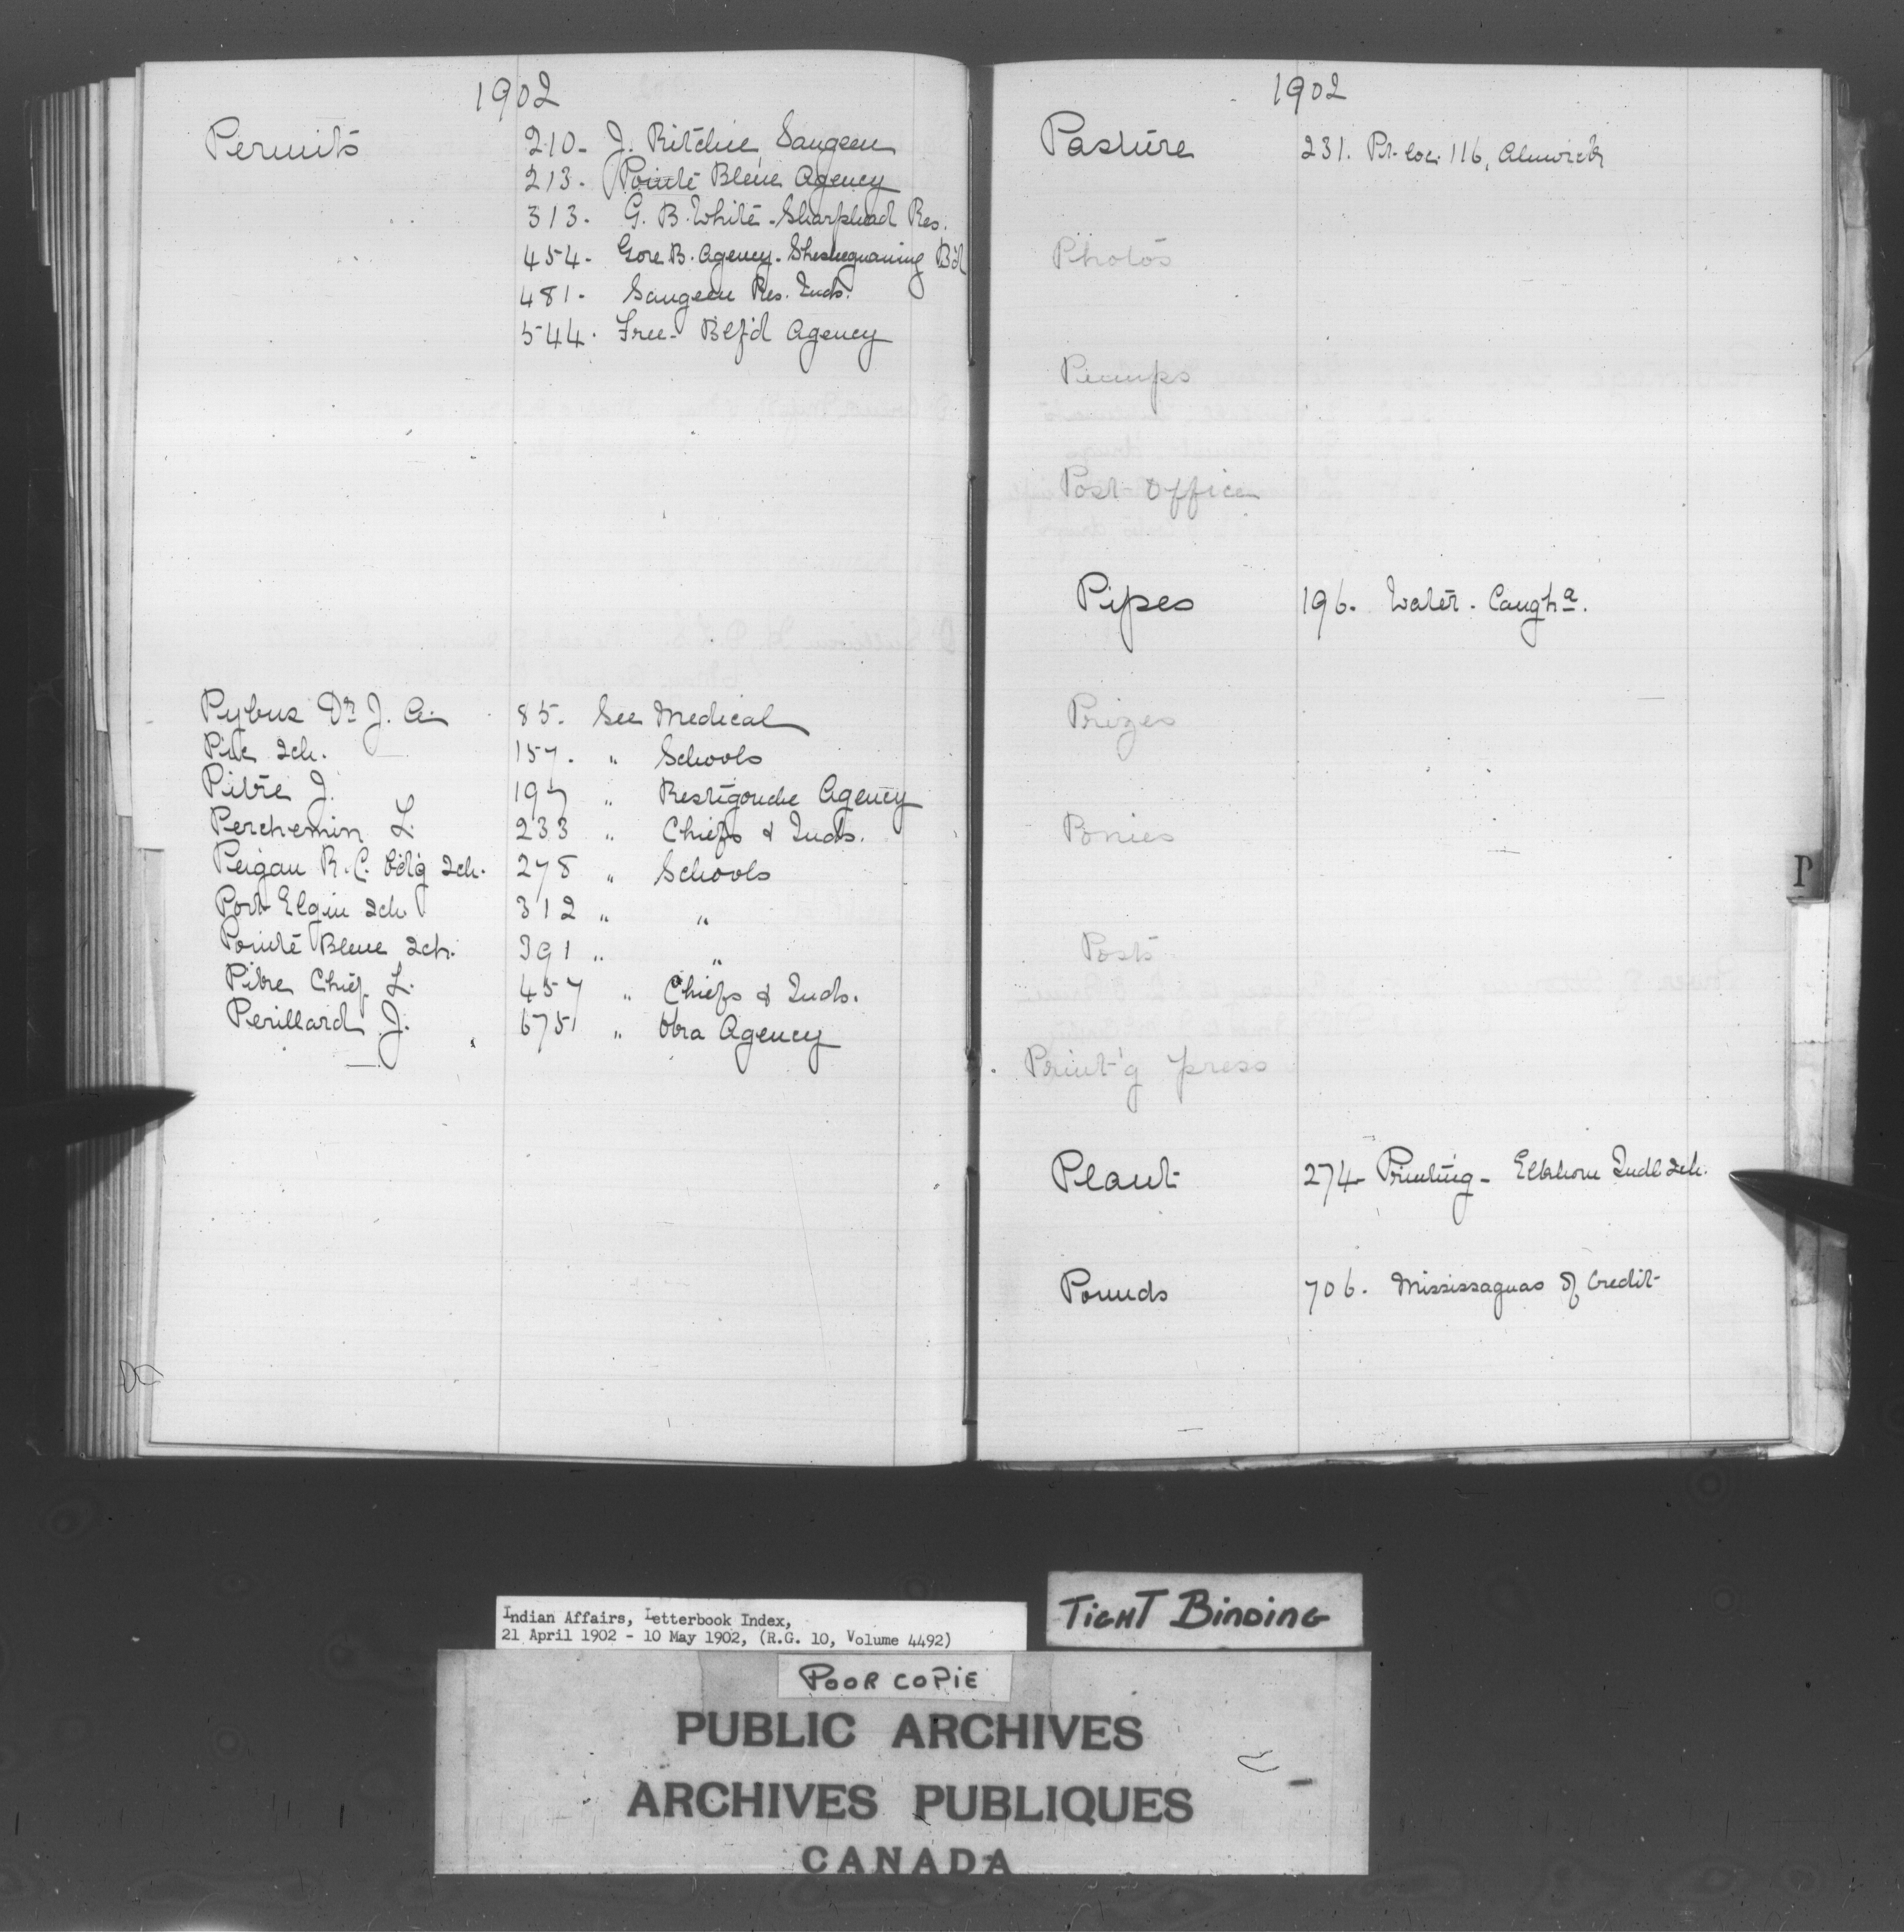 1902
Permits 210- J. Ritchie, Saugeen
213- Pointe Bleue Agency
313- G. B. White - Sharphead Res.
454- Gore B. Agency - Sheshegwaning Bd
481- Saugeen Res. Inds.
544. Free- Btf'd Agency
Pybus Dr J. A. 85. See Medical
Pine Sch. 157. " Schools
Pitre J. 197 " Restigouche Agency
Perchemin L 233 " Chiefs & Inds.
Peigan R. C. Bd'g Sch. 278 " Schools
Port Elgin Sch 312 " "
Pointe Bleue Sch. 391 " "
Pitre Chief L. 457 " Chiefs & Inds.
Perillard J. 675 " Oka Agency
1902
Pasture 231. Pt. loc. 116, Alnwick
Photos
Pumps
Post Office
Pipes 196. Water - Caugha.
Prizes
Ponies
P
Posts
Print'g press
Plant 274- Printing - Elkhorn Indl Sch.
Pounds 706. Mississaguas of Credit
Indian Affairs, Letterbook Index,
21 April 1902 - 10 May 1902, (R.G. 10, Volume 4492)
TIGHT BINDING
POOR COPIE
PUBLIC ARCHIVES
ARCHIVES PUBLIQUES
CANADA